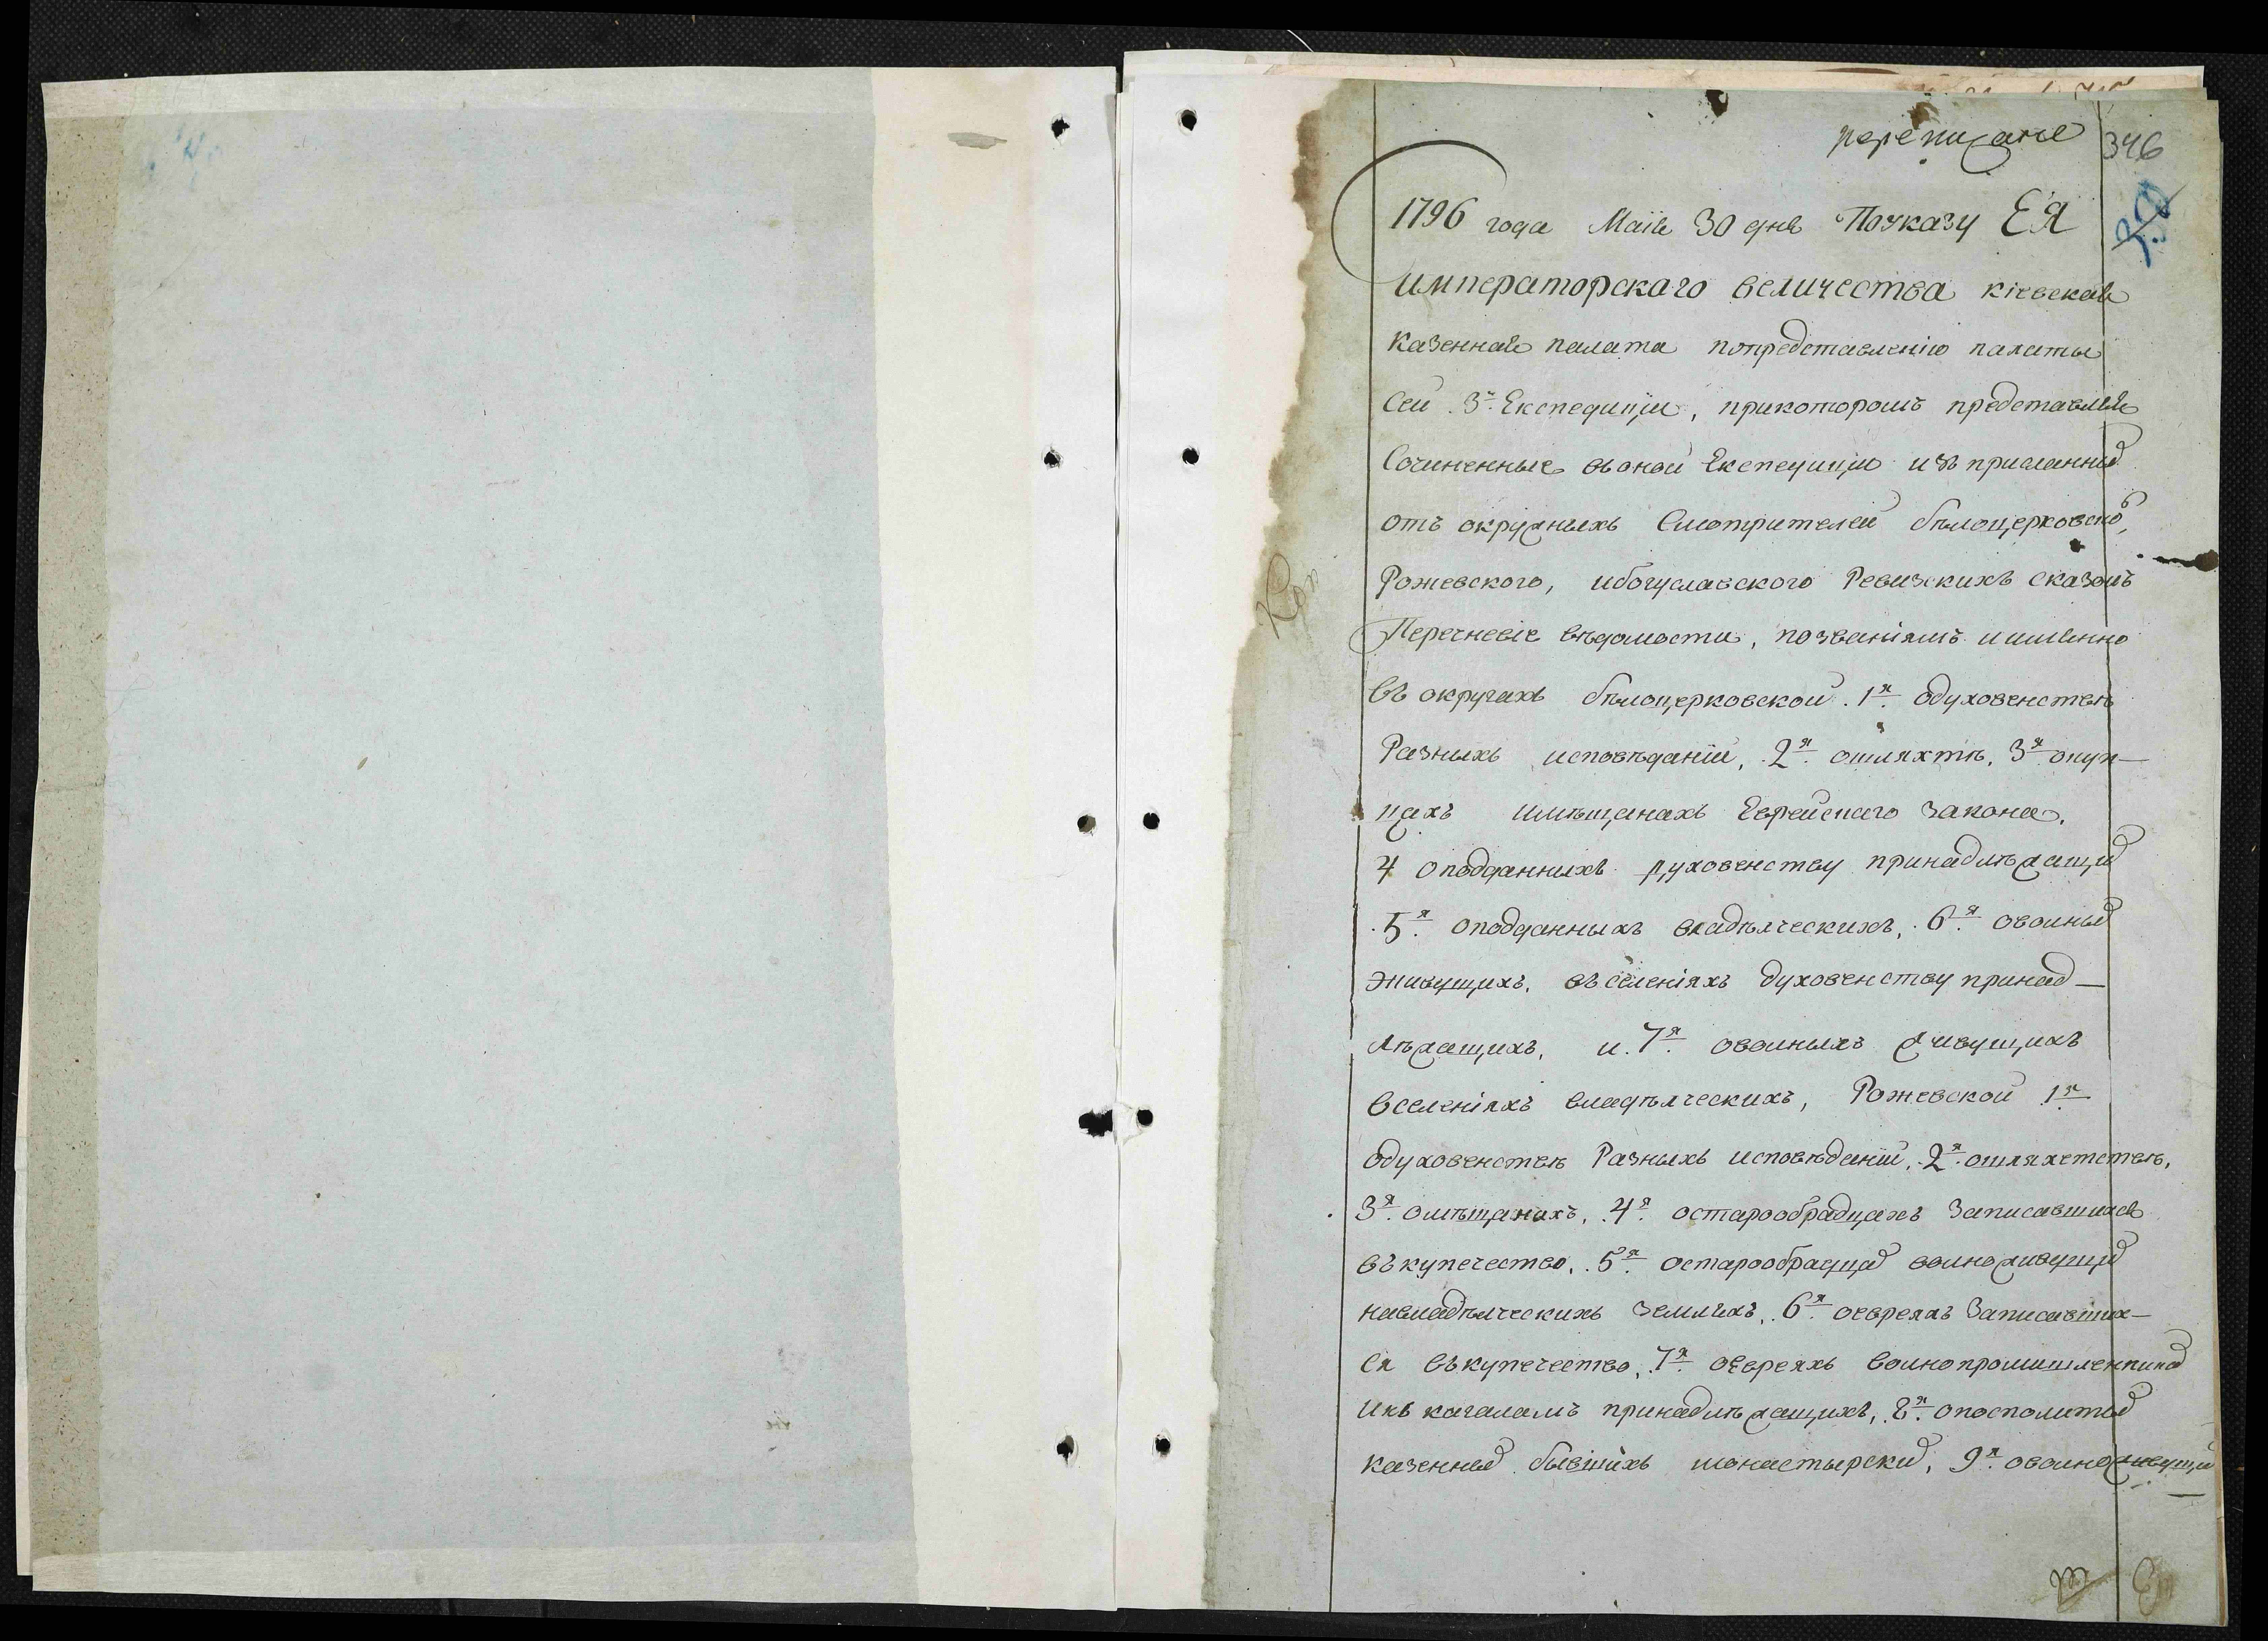 переписаніе
346
1796 года Маія 30 дня Поуказу ЕЯ
императорскаго величества кіевская
казенная палата попредставленію палаты
сей 3й Експедиціи, прикоторомъ представляя
Сочиненные въоной Експедиціи изъ присланныхъ
отъ окружныхъ Смотрителей бѣлоцерковского,
Рожевского, ибогуславского Ревизскихъ сказокъ
Перечневіе вѣдомости, позваніямъ иименно
въ округахъ бѣлоцерковской 1я одуховенствѣ
Разныхъ исповѣданіи, 2я ошляхтѣ, 3я окуп-
цахъ имѣщанахъ Еврейскаго закона,
4 оподданныхъ духовенству принадлѣжащихъ
5я оподданныхъ владѣлческихъ, 6я овольныхъ
живущихъ, въселеніяхъ духовенству принад-
лѣжащихъ, и 7я овольныхъ живущихъ
вселеніяхъ владѣлческихъ, Рожевской 1я
одуховенствѣ Разныхъ исповѣданіи, 2я ошляхетствѣ,
3я омѣщанахъ, 4я остарообрадцахъ Записавшихся
въкупечество, 5я остарообрадцахъ волноживущихъ
навладѣлческихъ земляхъ, 6я оевреяхъ Записавших-
ся въкупечество, 7я оевреяхъ волнопромишленникахъ
икъ кагаламъ принадлѣжащихъ, 8я опосполитыхъ
казенныхъ бывшихъ монастырскихъ, 9я оволноживущихъ